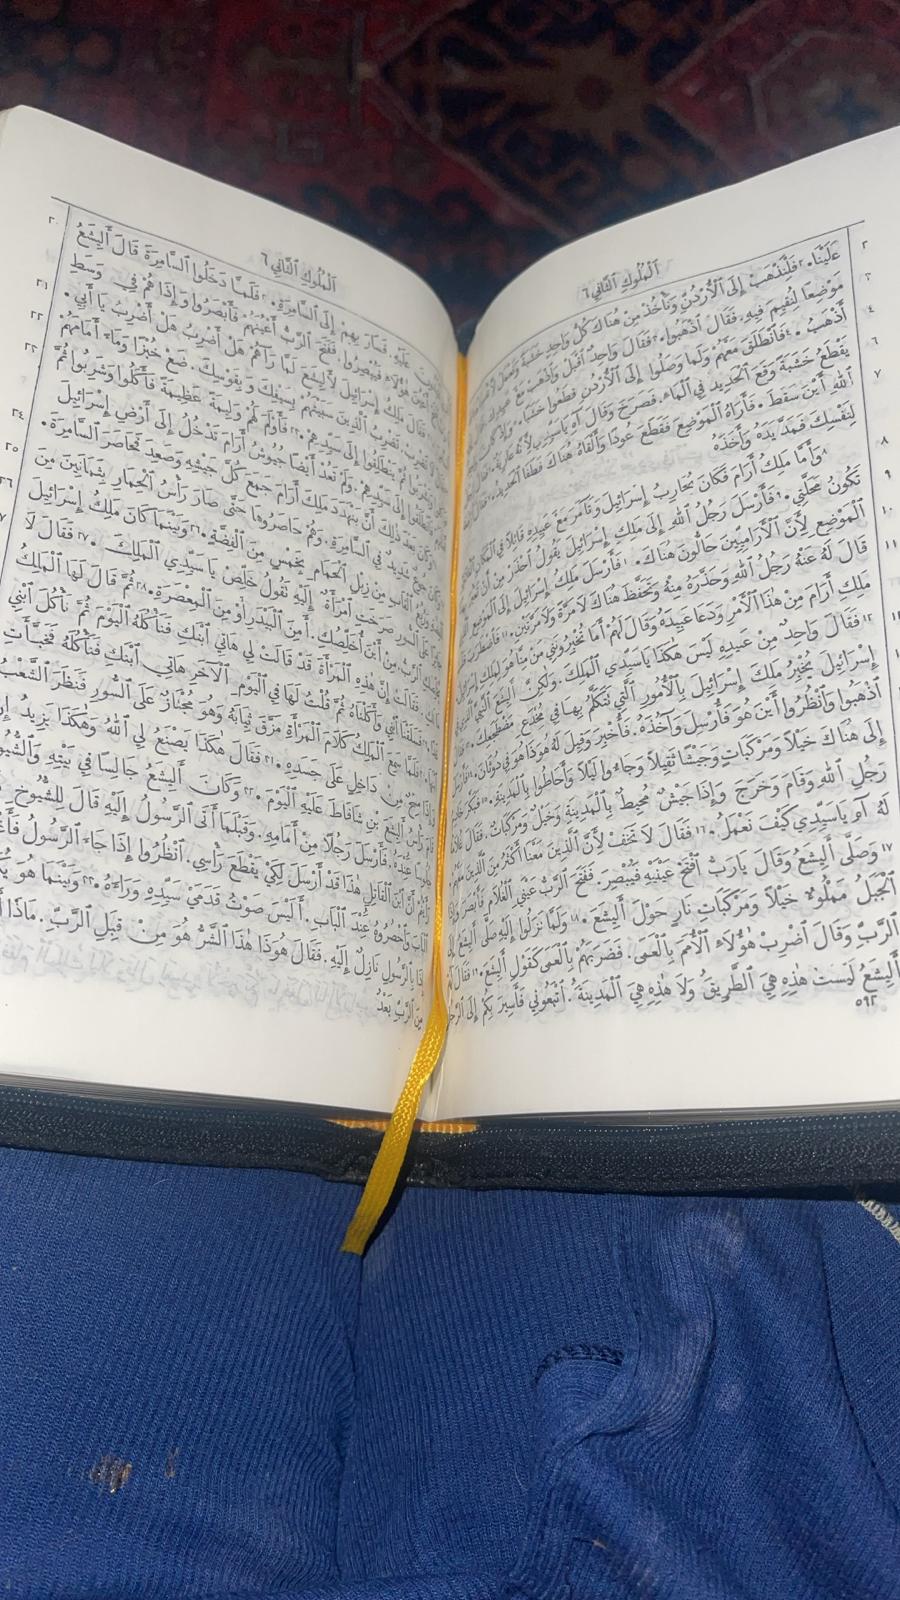 اَلْمُلُوكِ ٱلثَّانِي ٦
عَلَيْنَا. ٢فَلْنَذْهَبْ إِلَى ٱلْأُرْدُنِّ وَنَأْخُذْ مِنْ هُنَاكَ كُلُّ وَاحِدٍ خَشَبَةً وَنَعْمَلْ
مَوْضِعًا لِنُقِيمَ فِيهِ. فَقَالَ ٱذْهَبُوا. ٣فَقَالَ وَاحِدٌ ٱقْبَلْ وَٱذْهَبْ مَعَ عَبِيدِكَ
أَذْهَبُ. ٤فَٱنْطَلَقَ مَعَهُمْ وَلَمَّا وَصَلُوا إِلَى ٱلْأُرْدُنِّ قَطَعُوا خَشَبًا. وَإِذْ كَانَ
يَقْطَعُ خَشَبَةً وَقَعَ ٱلْحَدِيدُ فِي ٱلْمَاءِ. فَصَرَخَ وَقَالَ آهِ يَا سَيِّدِي لِأَنَّهُ عَارِيَةٌ
ٱللهِ أَيْنَ سَقَطَ. فَأَرَاهُ ٱلْمَوْضِعَ فَقَطَعَ عُودًا وَأَلْقَاهُ هُنَاكَ فَطَفَا ٱلْحَدِيدُ
لِنَفْسِكَ فَمَدَّ يَدَهُ وَأَخَذَهُ
٨وَأَمَّا مَلِكُ أَرَامَ فَكَانَ يُحَارِبُ إِسْرَائِيلَ وَتَآمَرَ مَعَ عَبِيدِهِ قَائِلًا فِي ٱلْمَكَانِ
تَكُونُ مَحَلَّتِي. ٩فَأَرْسَلَ رَجُلُ ٱللهِ إِلَى مَلِكِ إِسْرَائِيلَ يَقُولُ ٱحْذَرْ مِنْ أَنْ
ٱلْمَوْضِعِ لِأَنَّ ٱلْأَرَامِيِّينَ حَالُّونَ هُنَاكَ. ١٠فَأَرْسَلَ مَلِكُ إِسْرَائِيلَ إِلَى ٱلْمَوْضِعِ
قَالَ لَهُ عَنْهُ رَجُلُ ٱللهِ وَحَذَّرَهُ مِنْهُ وَتَحَفَّظَ هُنَاكَ لَا مَرَّةً وَلَا مَرَّتَيْنِ. ١١فَٱضْطَرَبَ
مَلِكِ أَرَامَ مِنْ هٰذَا ٱلْأَمْرِ وَدَعَا عَبِيدَهُ وَقَالَ لَهُمْ أَمَا تُخْبِرُونَنِي مَنْ مِنَّا هُوَ لِمَلِكِ إِسْرَائِيلَ
١٢فَقَالَ وَاحِدٌ مِنْ عَبِيدِهِ لَيْسَ هٰكَذَا يَا سَيِّدِي ٱلْمَلِكَ. وَلٰكِنَّ أَلِيشَعَ ٱلنَّبِيَّ
إِسْرَائِيلَ يُخْبِرُ مَلِكَ إِسْرَائِيلَ بِٱلْأُمُورِ ٱلَّتِي تَتَكَلَّمُ بِهَا فِي مُخْدَعِ مِضْطَجَعِكَ
ٱذْهَبُوا وَٱنْظُرُوا أَيْنَ هُوَ فَأُرْسِلَ وَآخُذَهُ. فَأُخْبِرَ وَقِيلَ لَهُ هُوَذَا هُوَ فِي دُوثَانَ
إِلَى هُنَاكَ خَيْلًا وَمَرْكَبَاتٍ وَجَيْشًا ثَقِيلًا وَجَاءُوا لَيْلًا وَأَحَاطُوا بِٱلْمَدِينَةِ. ١٥فَبَكَّرَ
رَجُلِ ٱللهِ وَقَامَ وَخَرَجَ وَإِذَا جَيْشٌ مُحِيطٌ بِٱلْمَدِينَةِ وَخَيْلٌ وَمَرْكَبَاتٌ. فَقَالَ
لَهُ آهِ يَا سَيِّدِي كَيْفَ نَعْمَلُ. ١٦فَقَالَ لَا تَخَفْ لِأَنَّ ٱلَّذِينَ مَعَنَا أَكْثَرُ مِنَ ٱلَّذِينَ مَعَهُمْ
١٧وَصَلَّى أَلِيشَعُ وَقَالَ يَا رَبُّ ٱفْتَحْ عَيْنَيْهِ فَيُبْصِرَ. فَفَتَحَ ٱلرَّبُّ عَيْنَيِ ٱلْغُلَامِ فَأَبْصَرَ وَإِذَا
ٱلْجَبَلُ مَمْلُوءٌ خَيْلًا وَمَرْكَبَاتِ نَارٍ حَوْلَ أَلِيشَعَ. ١٨وَلَمَّا نَزَلُوا إِلَيْهِ صَلَّى أَلِيشَعُ إِلَى
ٱلرَّبِّ وَقَالَ ٱضْرِبْ هٰؤُلَاءِ ٱلْأُمَمَ بِٱلْعَمَى. فَضَرَبَهُمْ بِٱلْعَمَى كَقَوْلِ أَلِيشَعَ. ١٩فَقَالَ لَهُمْ
أَلِيشَعُ لَيْسَتْ هٰذِهِ هِيَ ٱلطَّرِيقَ وَلَا هٰذِهِ هِيَ ٱلْمَدِينَةَ. ٱتْبَعُونِي فَأَسِيرَ بِكُمْ إِلَى ٱلرَّجُلِ
٥٩٢
اَلْمُلُوكِ ٱلثَّانِي ٦
عَلَيْهِ. فَسَارَ بِهِمْ إِلَى ٱلسَّامِرَةِ. ٢٠فَلَمَّا دَخَلُوا ٱلسَّامِرَةَ قَالَ أَلِيشَعُ
أَعْيُنَ هٰؤُلَاءِ فَيُبْصِرُوا. فَفَتَحَ ٱلرَّبُّ أَعْيُنَهُمْ فَأَبْصَرُوا وَإِذَا هُمْ فِي وَسَطِ
فَقَالَ مَلِكُ إِسْرَائِيلَ لِأَلِيشَعَ لَمَّا رَآهُمْ هَلْ أَضْرِبُ هَلْ أَضْرِبُ يَا أَبِي.
تَضْرِبُ ٱلَّذِينَ سَبَيْتَهُمْ بِسَيْفِكَ وَبِقَوْسِكَ. ضَعْ خُبْزًا وَمَاءً أَمَامَهُمْ
يَنْطَلِقُوا إِلَى سَيِّدِهِمْ. ٢٣فَأَوْلَمَ لَهُمْ وَلِيمَةً عَظِيمَةً فَأَكَلُوا وَشَرِبُوا ثُمَّ
إِلَى سَيِّدِهِمْ. وَلَمْ تَعُدْ أَيْضًا جُيُوشُ أَرَامَ تَدْخُلُ إِلَى أَرْضِ إِسْرَائِيلَ
وَكَانَ بَعْدَ ذٰلِكَ أَنَّ بَنْهَدَدَ مَلِكَ أَرَامَ جَمَعَ كُلَّ جَيْشِهِ وَصَعِدَ فَحَاصَرَ ٱلسَّامِرَةَ.
جُوعٌ شَدِيدٌ فِي ٱلسَّامِرَةِ. وَهُمْ حَاصَرُوهَا حَتَّى صَارَ رَأْسُ ٱلْحِمَارِ بِثَمَانِينَ مِنَ
ٱلْقَابِ مِنْ زِبْلِ ٱلْحَمَامِ بِخَمْسٍ مِنَ ٱلْفِضَّةِ. ٢٦وَبَيْنَمَا كَانَ مَلِكُ إِسْرَائِيلَ
عَلَى ٱلسُّورِ صَرَخَتِ ٱمْرَأَةٌ إِلَيْهِ تَقُولُ خَلِّصْ يَا سَيِّدِي ٱلْمَلِكَ. ٢٧فَقَالَ لَا
ٱلرَّبُّ. مِنْ أَيْنَ أُخَلِّصُكِ. أَمِنَ ٱلْبَيْدَرِ أَوْ مِنَ ٱلْمِعْصَرَةِ. ٢٨ثُمَّ قَالَ لَهَا ٱلْمَلِكُ
فَقَالَتْ إِنَّ هٰذِهِ ٱلْمَرْأَةَ قَدْ قَالَتْ لِي هَاتِي ٱبْنَكِ فَنَأْكُلَهُ ٱلْيَوْمَ ثُمَّ نَأْكُلَ ٱبْنِي
فَسَلَقْنَا ٱبْنِي وَأَكَلْنَاهُ ثُمَّ قُلْتُ لَهَا فِي ٱلْيَوْمِ ٱلْآخَرِ هَاتِي ٱبْنَكِ فَنَأْكُلَهُ فَخَبَّأَتِ
فَلَمَّا سَمِعَ ٱلْمَلِكُ كَلَامَ ٱلْمَرْأَةِ مَزَّقَ ثِيَابَهُ وَهُوَ مُجْتَازٌ عَلَى ٱلسُّورِ فَنَظَرَ ٱلشَّعْبُ
مِسْحٌ مِنْ دَاخِلٍ عَلَى جَسَدِهِ. ٣١فَقَالَ هٰكَذَا يَصْنَعُ لِي ٱللهُ وَهٰكَذَا يَزِيدُ
رَأْسُ أَلِيشَعَ بْنِ شَافَاطَ عَلَيْهِ ٱلْيَوْمَ. ٣٢وَكَانَ أَلِيشَعُ جَالِسًا فِي بَيْتِهِ وَٱلشُّيُوخُ
عِنْدَهُ. فَأَرْسَلَ رَجُلًا مِنْ أَمَامِهِ. وَقَبْلَمَا أَتَى ٱلرَّسُولُ إِلَيْهِ قَالَ لِلشُّيُوخِ
أَنَّ ٱبْنَ ٱلْقَاتِلِ هٰذَا قَدْ أَرْسَلَ لِكَيْ يَقْطَعَ رَأْسِي. ٱنْظُرُوا إِذَا جَاءَ ٱلرَّسُولُ
ٱلْبَابَ وَٱحْصُرُوهُ عِنْدَ ٱلْبَابِ. أَلَيْسَ صَوْتُ قَدَمَيْ سَيِّدِهِ وَرَاءَهُ. ٣٣وَبَيْنَمَا هُوَ
إِذَا بِٱلرَّسُولِ نَازِلٌ إِلَيْهِ. فَقَالَ هُوَذَا هٰذَا ٱلشَّرُّ هُوَ مِنْ قِبَلِ ٱلرَّبِّ. مَاذَا
مِنَ ٱلرَّبِّ بَعْدُ